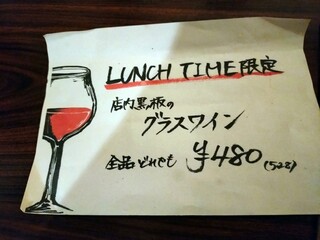 LUNCH TIME限定
店内黒板の
グラスワイン
全品どれでも ¥480(528)